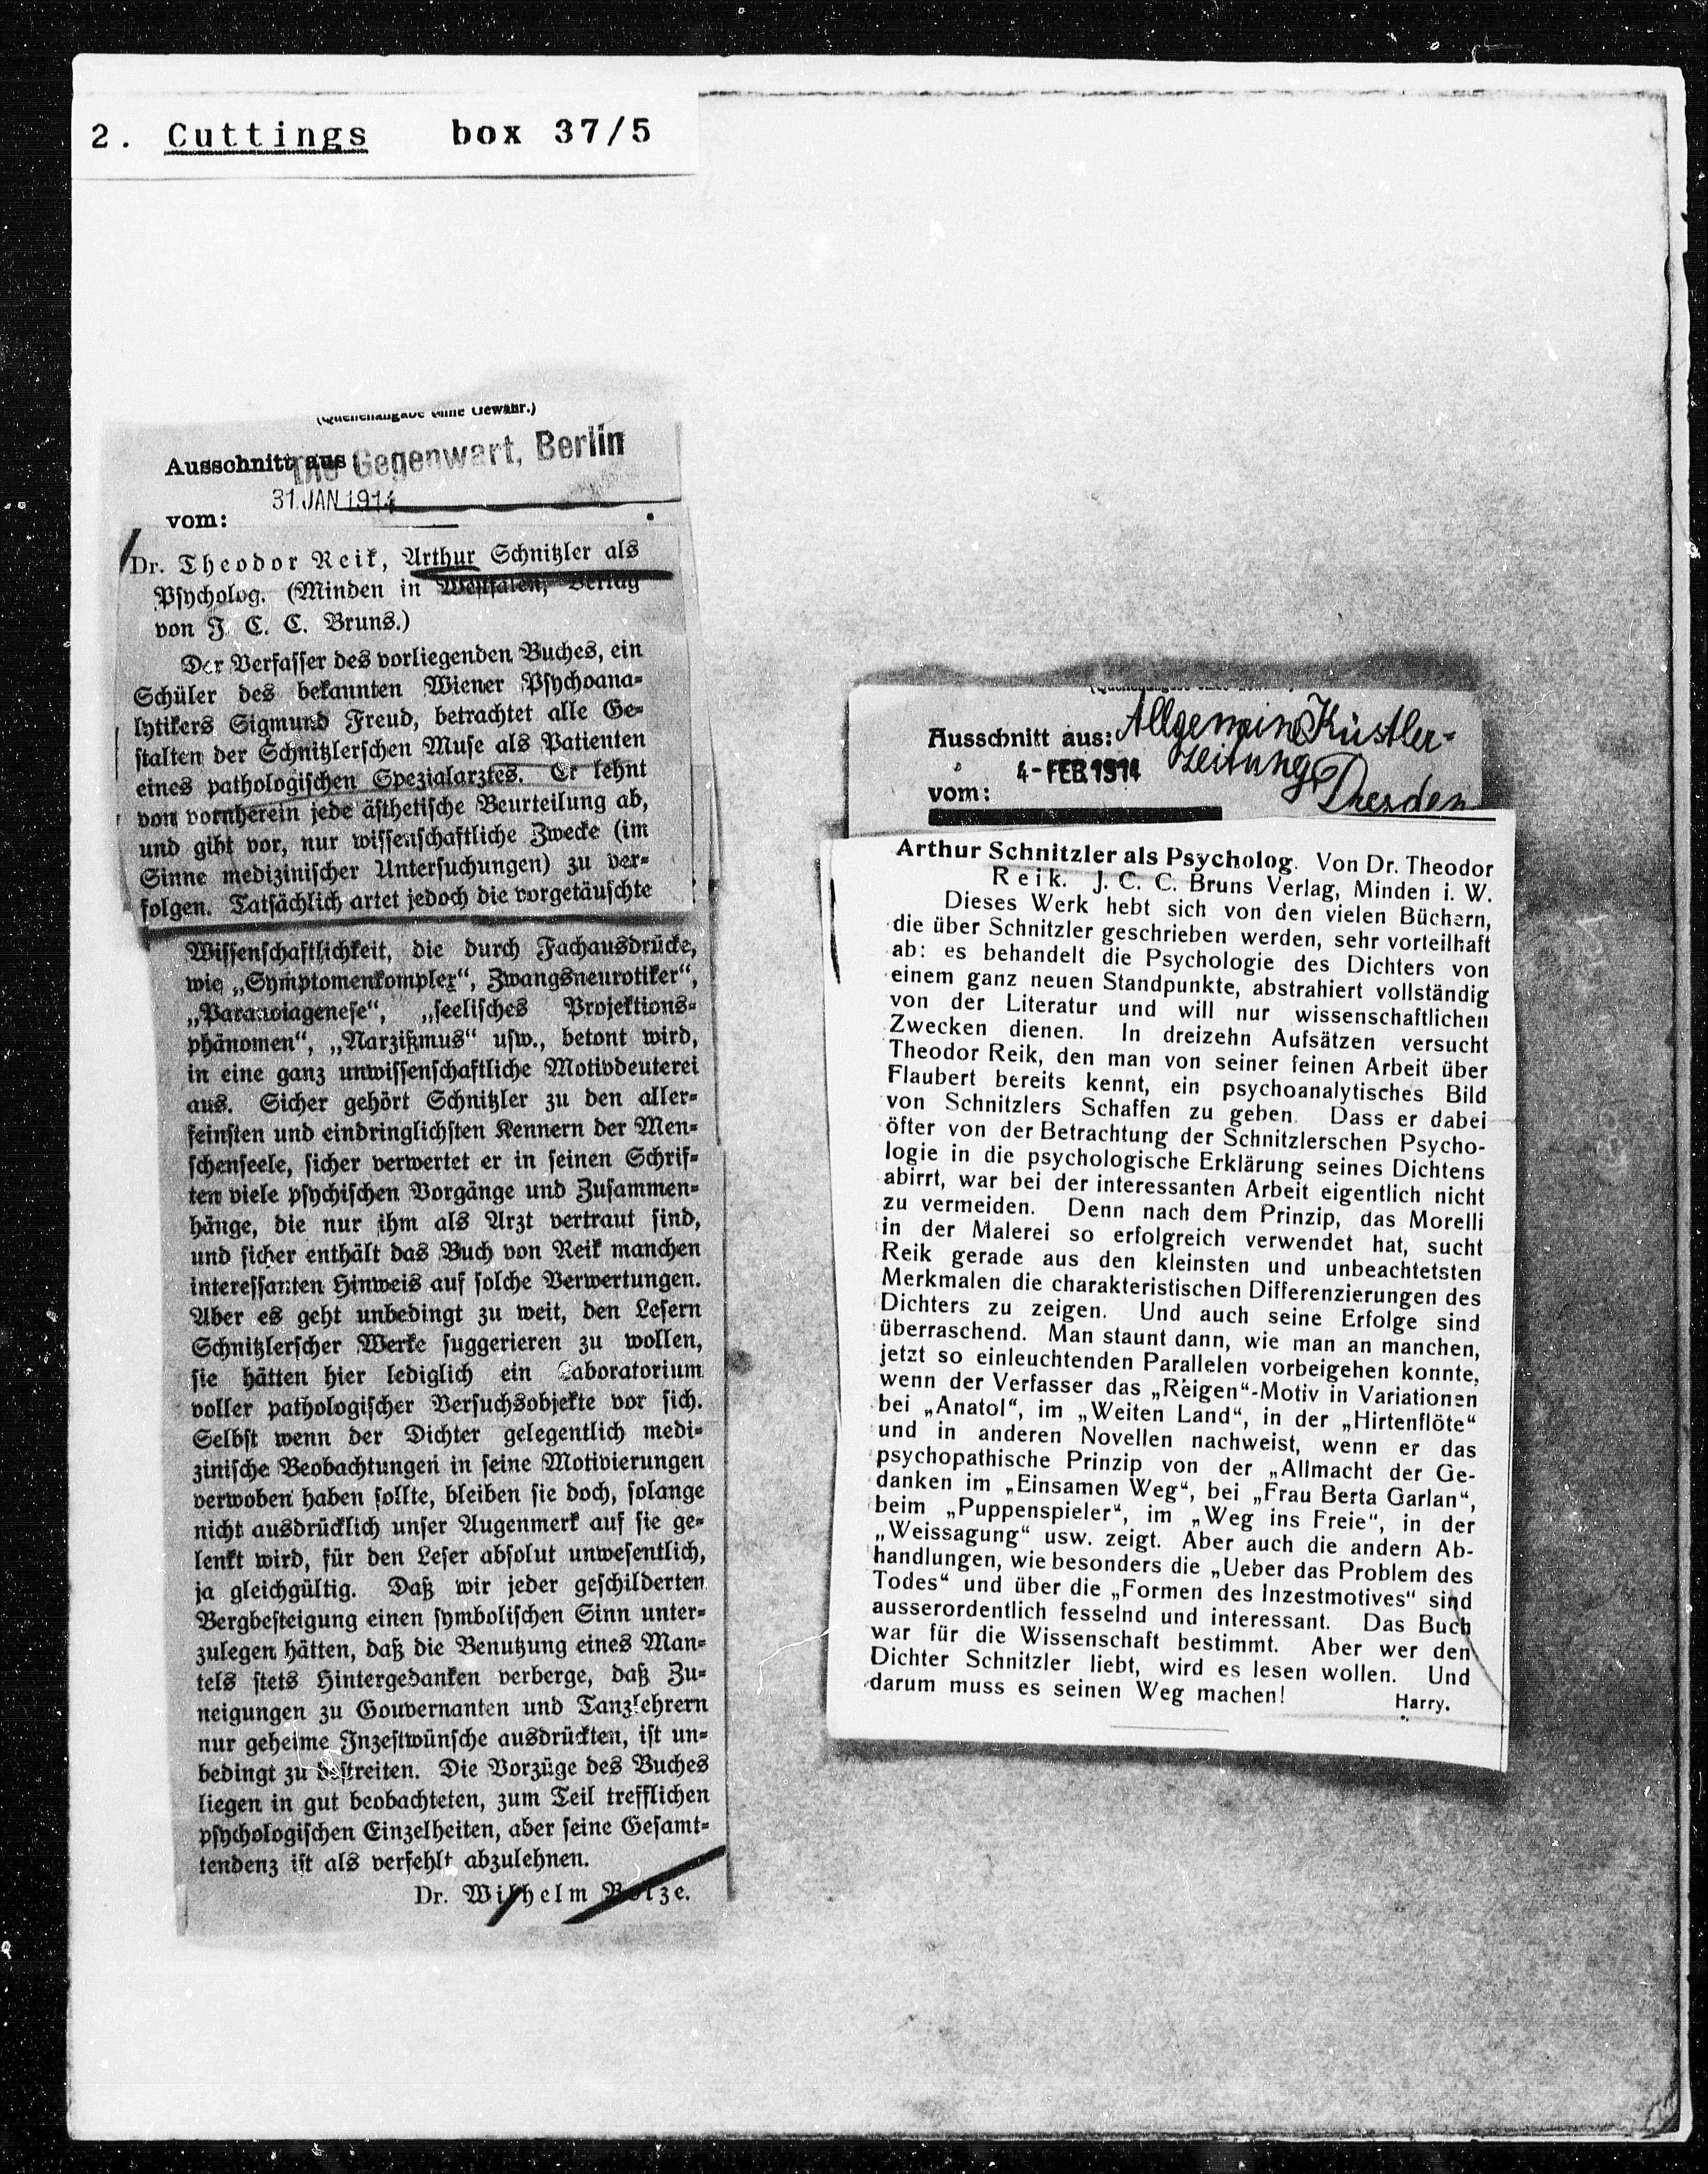 2. Cuttings box 37/5
(Quellenangabe ohne Gewähr.)
Ausschnitt aus: Die Gegenwart, Berlin
31. JAN 1914
vom:
Dr. Theodor Reik, Arthur Schnitzler als
Psycholog. (Minden in Westfalen, Verlag
von J. C. C. Bruns.)
Der Verfasser des vorliegenden Buches, ein
Schüler des bekannten Wiener Psychoana-
lytikers Sigmund Freud, betrachtet alle Ge-
stalten der Schnitzlerschen Muse als Patienten
eines pathologischen Spezialarztes. Er lehnt
von vornherein jede ästhetische Beurteilung ab,
und gibt vor, nur wissenschaftliche Zwecke (im
Sinne medizinischer Untersuchungen) zu ver-
folgen. Tatsächlich artet jedoch die vorgetäuschte
Wissenschaftlichkeit, die durch Fachausdrücke,
wie „Symptomenkomplex“, Zwangsneurotiker“,
„Paranoiagenese“, „seelisches Projektions-
phänomen“, „Narzißmus“ usw., betont wird,
in eine ganz unwissenschaftliche Motivdeuterei
aus. Sicher gehört Schnitzler zu den aller-
feinsten und eindringlichsten Kennern der Men-
schenseele, sicher verwertet er in seinen Schrif-
ten viele psychischen Vorgänge und Zusammen-
hänge, die nur ihm als Arzt vertraut sind,
und sicher enthält das Buch von Reik manchen
interessanten Hinweis auf solche Verwertungen.
Aber es geht unbedingt zu weit, den Lesern
Schnitzlerscher Werke suggerieren zu wollen,
sie hätten hier lediglich ein Laboratorium
voller pathologischer Versuchsobjekte vor sich.
Selbst wenn der Dichter gelegentlich medi-
zinische Beobachtungen in seine Motivierungen
verwoben haben sollte, bleiben sie doch, solange
nicht ausdrücklich unser Augenmerk auf sie ge-
lenkt wird, für den Leser absolut unwesentlich,
ja gleichgültig. Daß wir jeder geschilderten
Bergbesteigung einen symbolischen Sinn unter-
zulegen hätten, daß die Benutzung eines Man-
tels stets Hintergedanken verberge, daß Zu-
neigungen zu Gouvernanten und Tanzlehrern
nur geheime Inzestwünsche ausdrückten, ist un-
bedingt zu bestreiten. Die Vorzüge des Buches
liegen in gut beobachteten, zum Teil trefflichen
psychologischen Einzelheiten, aber seine Gesamt-
tendenz ist als verfehlt abzulehnen.
Dr. Wilhelm
Ausschnitt aus: Allgemeine Küstler-
Zeitung
4-FEB 1914
vom:
Dresden
Arthur Schnitzler als Psycholog. Von Dr. Theodor
Reik. J. C. C. Bruns Verlag, Minden i. W.
Dieses Werk hebt sich von den vielen Büchern,
die über Schnitzler geschrieben werden, sehr vorteilhaft
ab: es behandelt die Psychologie des Dichters von
einem ganz neuen Standpunkte, abstrahiert vollständig
von der Literatur und will nur wissenschaftlichen
Zwecken dienen. In dreizehn Aufsätzen versucht
Theodor Reik, den man von seiner feinen Arbeit über
Flaubert bereits kennt, ein psychoanalytisches Bild
von Schnitzlers Schaffen zu geben. Dass er dabei
öfter von der Betrachtung der Schnitzlerschen Psycho-
logie in die psychologische Erklärung seines Dichtens
abirrt, war bei der interessanten Arbeit eigentlich nicht
zu vermeiden. Denn nach dem Prinzip, das Morelli
in der Malerei so erfolgreich verwendet hat, sucht
Reik gerade aus den kleinsten und unbeachtetsten
Merkmalen die charakteristischen Differenzierungen des
Dichters zu zeigen. Und auch seine Erfolge sind
überraschend. Man staunt dann, wie man an manchen,
jetzt so einleuchtenden Parallelen vorbeigehen konnte,
wenn der Verfasser das „Reigen“-Motiv in Variationen
bei „Anatol“, im „Weiten Land“, in der „Hirtenflöte“
und in anderen Novellen nachweist, wenn er das
psychopathische Prinzip von der „Allmacht der Ge-
danken im „Einsamen Weg“, bei „Frau Berta Garlan“,
beim „Puppenspieler“, im „Weg ins Freie“, in der
„Weissagung“ usw. zeigt. Aber auch die andern Ab-
handlungen, wie besonders die „Ueber das Problem des
Todes“ und über die „Formen des Inzestmotives“ sind
ausserordentlich fesselnd und interessant. Das Buch
war für die Wissenschaft bestimmt. Aber wer den
Dichter Schnitzler liebt, wird es lesen wollen. Und
darum muss es seinen Weg machen!
Harry.